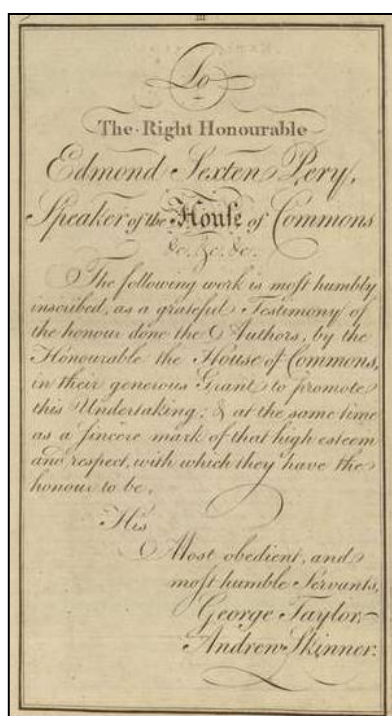 III
To
The Right Honourable
Edmond Sexten Pery,
Speaker of the Houſe of Commons
&c. &c. &c.
The following work is moſt humbly
inscribed, as a grateful Testimony of
the honour done the Authors, by the
Honourable the House of Commons,
in their generous Grant to promote
this Undertaking; & at the same time
as a sincere mark of that high esteem
and respect, with which they have the
honour to be,
His
Most obedient, and
moſt humble Servants,
George Taylor,
Andrew Skinner.